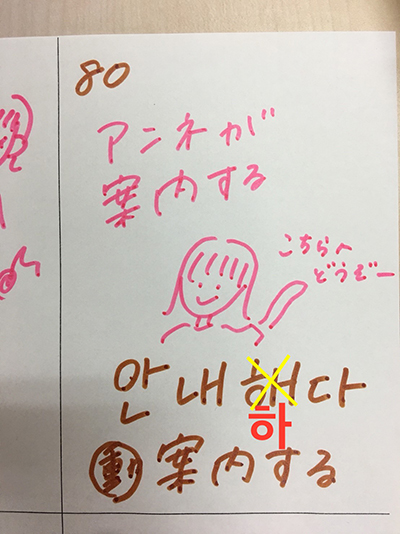 80
アンネが
案内する
こちらへ
どうぞー
안내해다
하
動 案内する